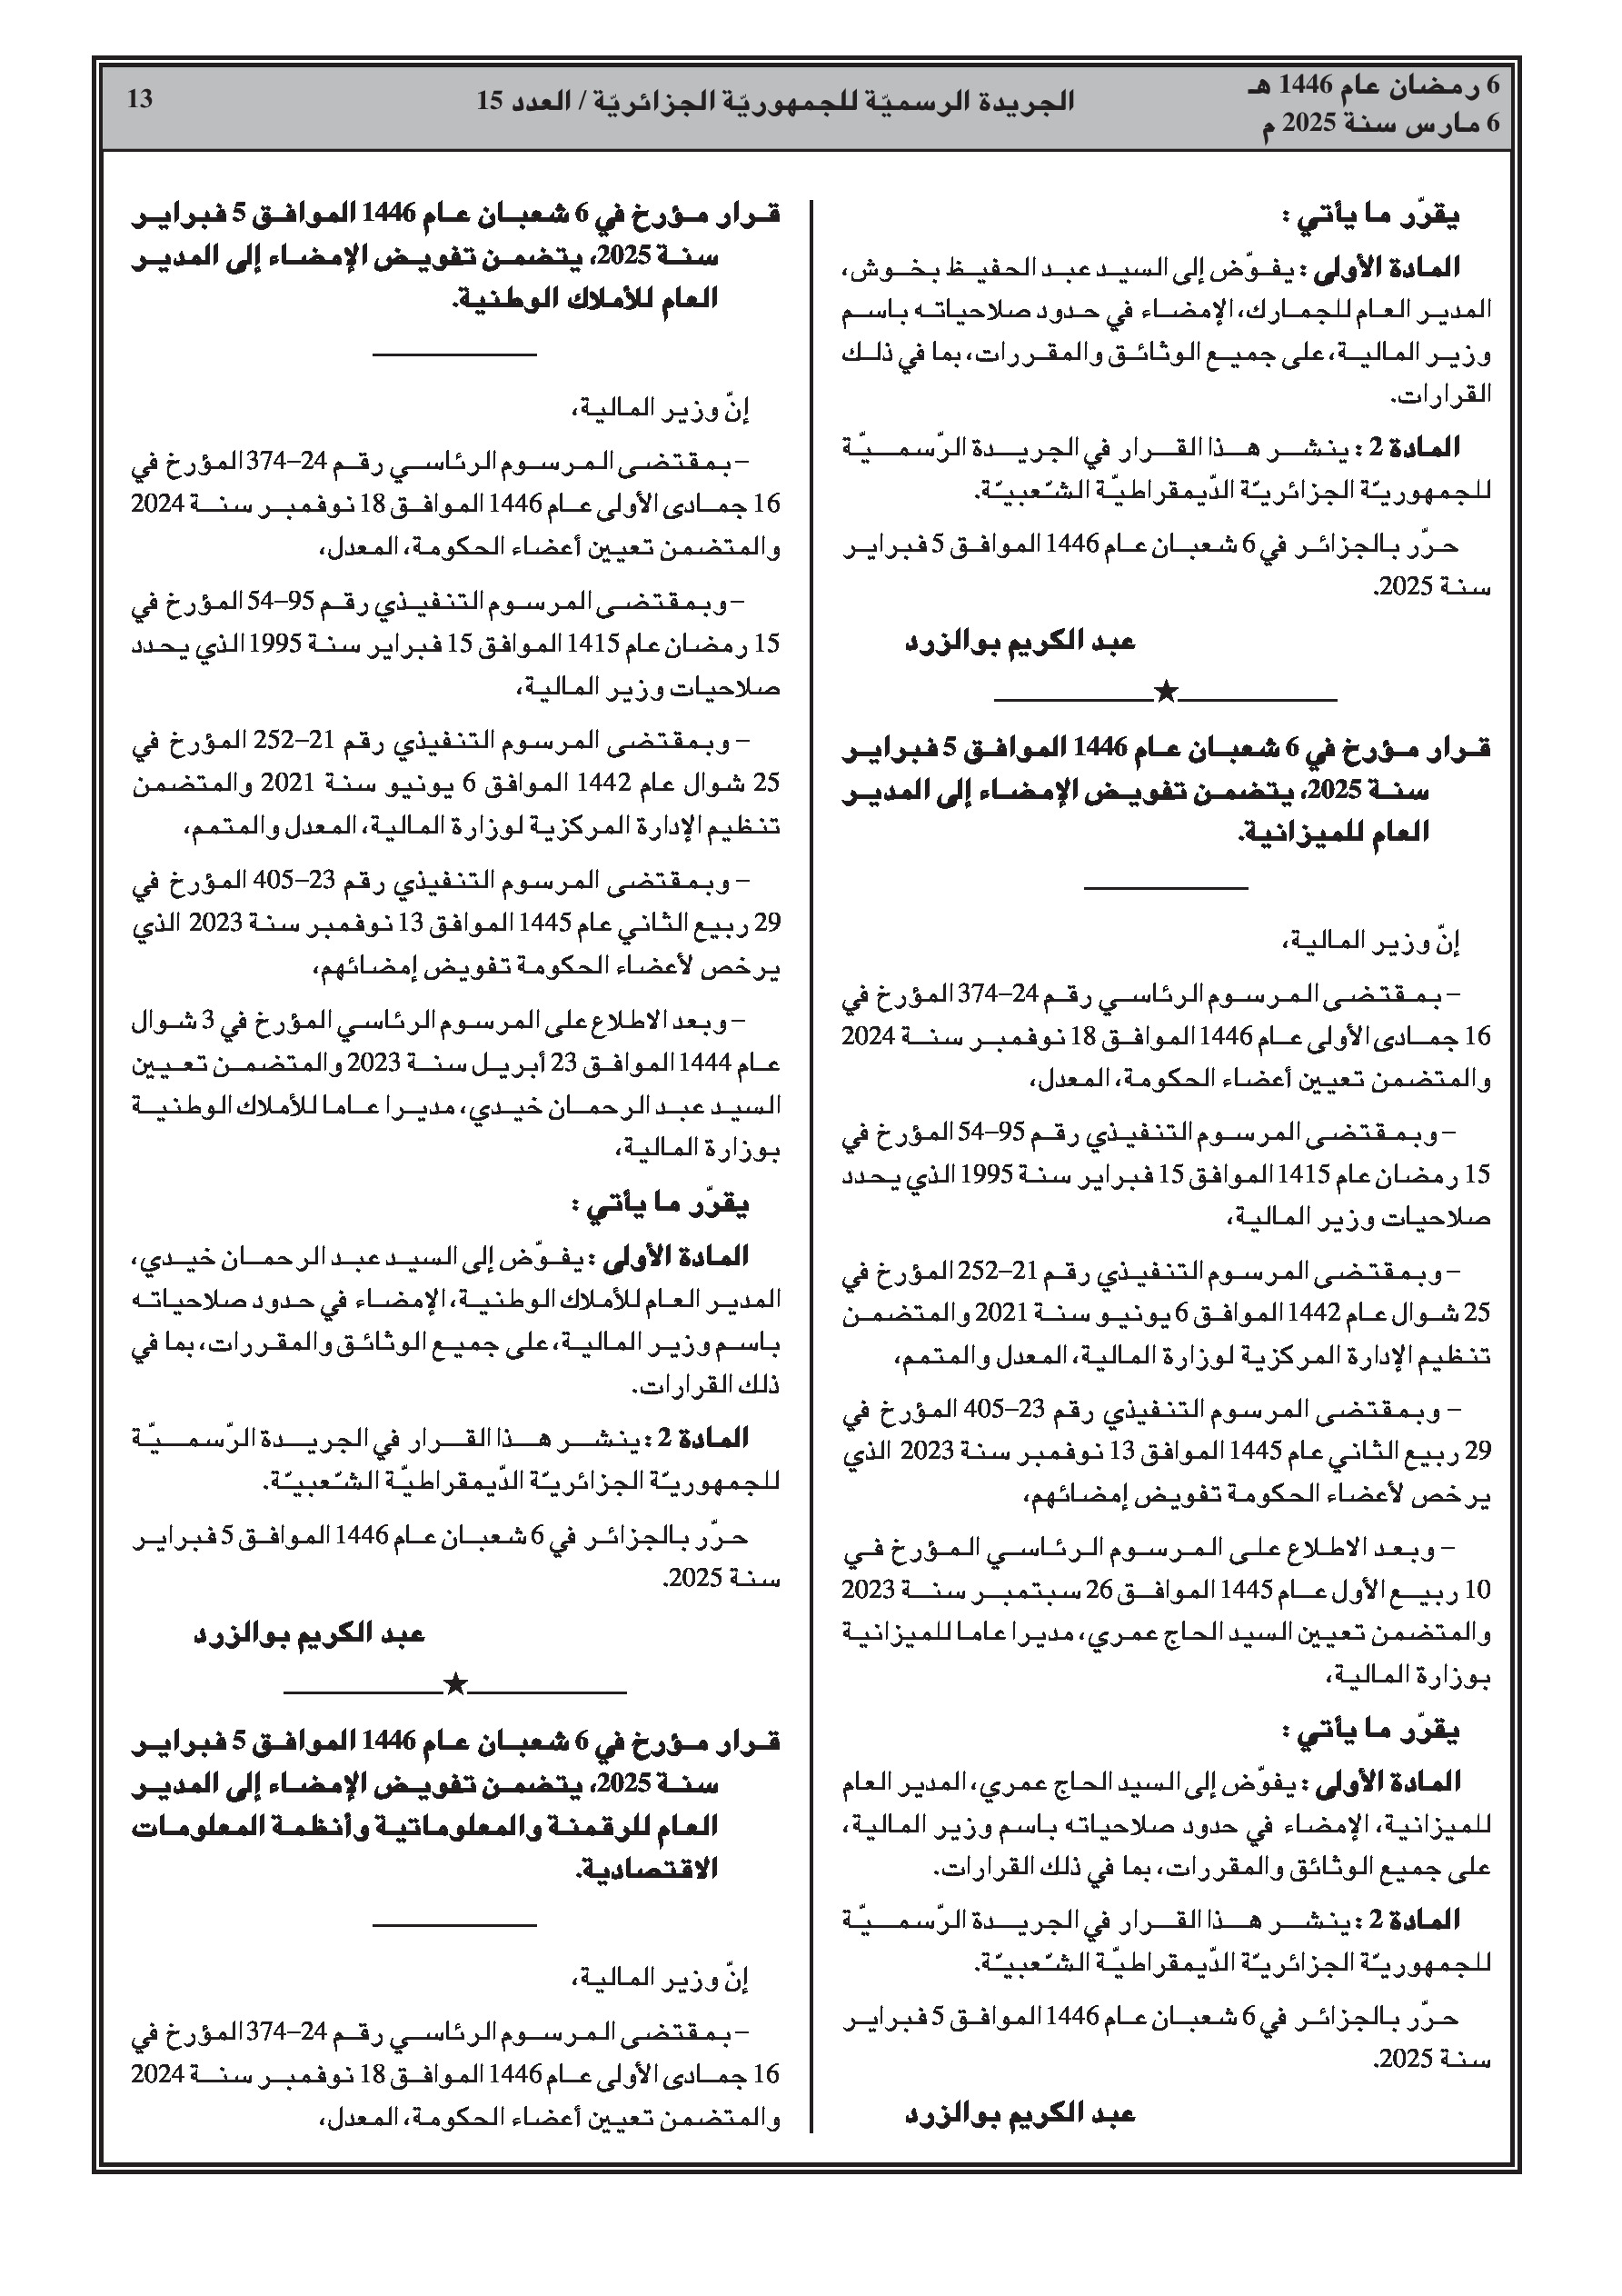 6 رمضان عام 1446 هـ
6 مارس سنة 2025 م
الجريدة الرسميّة للجمهوريّة الجزائريّة / العدد 15
13
يقرّر ما يأتي :
المادة الأولى : يفـوّض إلى السيـد عبـد الحفيـظ بـخـوش،
المديـر العـام للجمـارك، الإمضـاء في حـدود صلاحياتـه باسـم
وزيـر الماليـة، على جميـع الوثائـق والمقـررات، بما في ذلـك
القرارات.
المادة 2 : ينشـر هـذا القـرار في الجريـدة الرّسمـيّة
للجمهوريّة الجزائريّة الدّيمقراطيّة الشّعبيّة.
حـرّر بالجزائـر في 6 شعبـان عـام 1446 الموافـق 5 فبرايـر
سنة 2025.
عبد الكريم بوالزرد
قـرار مـؤرخ في 6 شعبـان عـام 1446 الموافـق 5 فبرايـر
سنـة 2025، يتضمـن تفويـض الإمضـاء إلى المديـر
العام للميزانية.
إنّ وزير المالية،
– بمقتضى المرسوم الرئاسي رقم 24–374 المؤرخ في
16 جمـادى الأولى عـام 1446 الموافـق 18 نوفمبـر سنـة 2024
والمتضمن تعيين أعضاء الحكومة، المعدل،
– وبمقتضى المرسوم التنفيذي رقم 95–54 المؤرخ في
15 رمضان عام 1415 الموافق 15 فبراير سنة 1995 الذي يحدد
صلاحيات وزير المالية،
– وبمقتضى المرسوم التنفيذي رقم 21–252 المؤرخ في
25 شـوال عـام 1442 الموافـق 6 يونيـو سنـة 2021 والمتضمـن
تنظيم الإدارة المركزية لوزارة المالية، المعدل والمتمم،
– وبمقتضى المرسوم التنفيذي رقم 23–405 المؤرخ في
29 ربيع الثاني عام 1445 الموافق 13 نوفمبر سنة 2023 الذي
يرخص لأعضاء الحكومة تفويض إمضائهم،
– وبعد الاطلاع على المرسوم الرئاسي المؤرخ في
10 ربيـع الأول عـام 1445 الموافـق 26 سبتمبـر سنـة 2023
والمتضمن تعيين السيد الحاج عمري، مديرا عاما للميزانية
بوزارة المالية،
يقرّر ما يأتي :
المادة الأولى : يفوّض إلى السيد الحاج عمري، المدير العام
للميزانية، الإمضاء في حدود صلاحياته باسم وزير المالية،
على جميع الوثائق والمقررات، بما في ذلك القرارات.
المادة 2 : ينشـر هـذا القـرار في الجريـدة الرّسمـيّة
للجمهوريّة الجزائريّة الدّيمقراطيّة الشّعبيّة.
حـرّر بالجزائـر في 6 شعبـان عـام 1446 الموافـق 5 فبرايـر
سنة 2025.
عبد الكريم بوالزرد
قـرار مـؤرخ في 6 شعبـان عـام 1446 الموافـق 5 فبرايـر
سنـة 2025، يتضمـن تفويـض الإمضـاء إلى المديـر
العام للأملاك الوطنية.
إنّ وزير المالية،
– بمقتضى المرسوم الرئاسي رقم 24–374 المؤرخ في
16 جمـادى الأولى عـام 1446 الموافـق 18 نوفمبـر سنـة 2024
والمتضمن تعيين أعضاء الحكومة، المعدل،
– وبمقتضى المرسوم التنفيذي رقم 95–54 المؤرخ في
15 رمضان عام 1415 الموافق 15 فبراير سنة 1995 الذي يحدد
صلاحيات وزير المالية،
– وبمقتضى المرسوم التنفيذي رقم 21–252 المؤرخ في
25 شوال عام 1442 الموافق 6 يونيو سنة 2021 والمتضمن
تنظيم الإدارة المركزية لوزارة المالية، المعدل والمتمم،
– وبمقتضى المرسوم التنفيذي رقم 23–405 المؤرخ في
29 ربيع الثاني عام 1445 الموافق 13 نوفمبر سنة 2023 الذي
يرخص لأعضاء الحكومة تفويض إمضائهم،
– وبعد الاطلاع على المرسوم الرئاسي المؤرخ في 3 شوال
عـام 1444 الموافـق 23 أبريـل سنـة 2023 والمتضمـن تعـيين
السيـد عبـد الرحمـان خيـدي، مديـرا عـاما للأملاك الوطنيـة
بوزارة المالية،
يقرّر ما يأتي :
المادة الأولى : يفـوّض إلى السيـد عبـد الرحمـان خيـدي،
المديـر العـام للأملاك الوطنيـة، الإمضـاء في حـدود صلاحياتـه
باسـم وزيـر الماليـة، على جميـع الوثائـق والمقـررات، بما في
ذلك القرارات.
المادة 2 : ينشـر هـذا القـرار في الجريـدة الرّسمـيّة
للجمهوريّة الجزائريّة الدّيمقراطيّة الشّعبيّة.
حـرّر بالجزائـر في 6 شعبـان عـام 1446 الموافـق 5 فبرايـر
سنة 2025.
عبد الكريم بوالزرد
قـرار مـؤرخ في 6 شعبـان عـام 1446 الموافـق 5 فبرايـر
سنـة 2025، يتضمـن تفويـض الإمضـاء إلى المديـر
العـام للرقمنـة والمعلوماتيـة وأنظمـة المعلومـات
الاقتصادية.
إنّ وزير المالية،
– بمقتضى المرسوم الرئاسي رقم 24–374 المؤرخ في
16 جمـادى الأولى عـام 1446 الموافـق 18 نوفمبـر سنـة 2024
والمتضمن تعيين أعضاء الحكومة، المعدل،